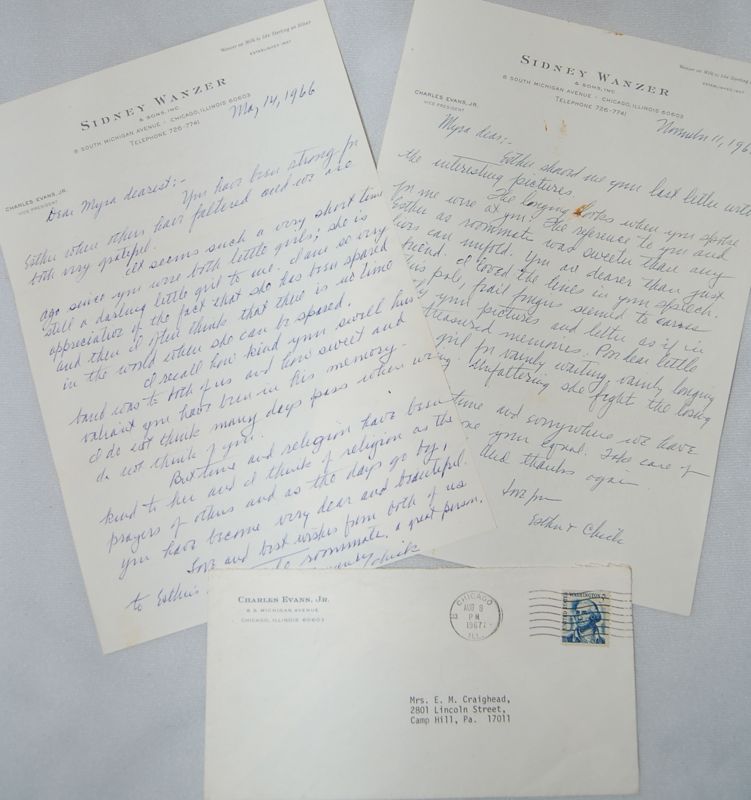 Wanzer on Milk is like Sterling on Silver
ESTABLISHED 1857
SIDNEY WANZER
& SONS, INC.
6 SOUTH MICHIGAN AVENUE · CHICAGO, ILLINOIS 60603
TELEPHONE 726-7741
CHARLES EVANS, JR.
VICE PRESIDENT
May 14, 1966
Dear Myra dearest:-
You have been strong for
Esther where others have faltered and we are
both very grateful.
It seems such a very short time
ago since you were both little girls; she is
still a darling little girl to me. I am so very
appreciative of the fact that she has been spared
and then I often think that there is no time
in the world when she can be spared.
I recall how kind your swell hus
band was to both of us and how sweet and
valiant you have been in his memory.
I do not think many days pass when we
do not think of you.
But time and religion have been
kind to her and I think of religion as the
prayers of others and as the days go by,
you have become very dear and beautiful.
Love and best wishes from both of us
to Esther's roommate, a great person.
Chick
Wanzer on Milk is like Sterling
ESTABLISHED 1857
SIDNEY WANZER
& SONS, INC.
6 SOUTH MICHIGAN AVENUE · CHICAGO, ILLINOIS 60603
TELEPHONE 726-7741
CHARLES EVANS, JR.
VICE PRESIDENT
November 11, 196
Myra dear:-
Esther showed me your last letter with
the interesting pictures
The longing notes when you spoke
for me were at you. The reference to you and
Esther as roommate was sweeter than any
can unfold. You are dearer than just
friend. I loved the lines in your speech.
his pale, frail fingers seemed to caress
your pictures and letter as if in
treasured memories. Poor dear little
girl for vainly waiting, vainly longing
Unfaltering she fight the losing
time and everywhere we have
your equal. Take care of
and thanks again
Love from
Esther & Chick
CHARLES EVANS, JR.
6 S. MICHIGAN AVENUE
CHICAGO, ILLINOIS 60603
CHICAGO
AUG 9
PM
1967
ILL.
WASHINGTON 5c
Mrs. E. M. Craighead,
2801 Lincoln Street,
Camp Hill, Pa. 17011